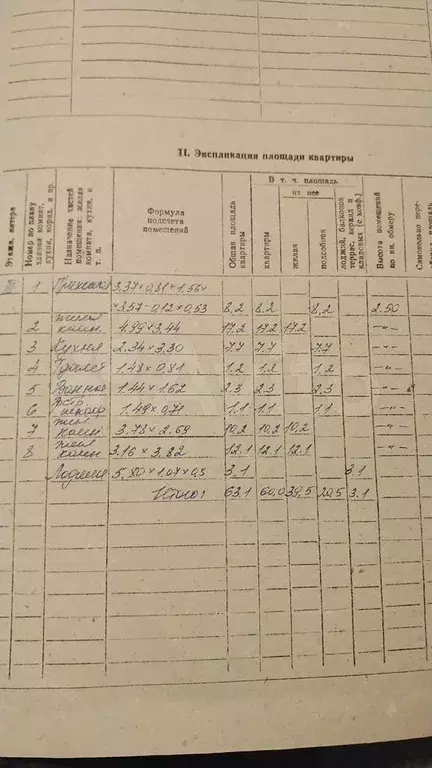 II. Экспликация площади квартиры
Этажи, литера
Номер по плану здания комнат, кухни, корид. и пр.
Назначение частей помещения: жилая комната, кухня, и т. п.
Формула подсчета помещений
Общая площадь квартиры
В т. ч. площадь
квартиры
из нее
жилая
подсобная
лоджий, балконов террас, веранд и кладовых (с коэф.)
Высота помещений по вн. обмеру
Самовольно пере-
III 1 Прихожая 3,37×0,81×1,56×
×3,57-0,12×0,53 8,2 8,2 8,2 2.50
2 жилая комн 4.99×3,44 17,2 17,2 17,2 -"-
3 Кухня 2.34×3.30 7.7 7,7 7.7 -"-
4 Туалет 1.48×0,81 1.2 1.2 1.2 -"-
5 Ванная 1.44×1.62 2.3 2.3 2.3 -"-
6 встр шкаф 1.49×0,71 1.1 1.1 1.1 -"-
7 жил комн 3.78×2.69 10,2 10,2 10,2 -"-
8 жил комн 3.16×3,82 12.1 12.1 12.1 -"-
Лоджия 5,80×1,07×0,5 3.1 3.1
Итого: 63.1 60,0 39,5 20,5 3.1